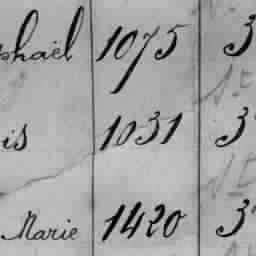 phaël 1075 3
is 1031 3
Marie 1420 3